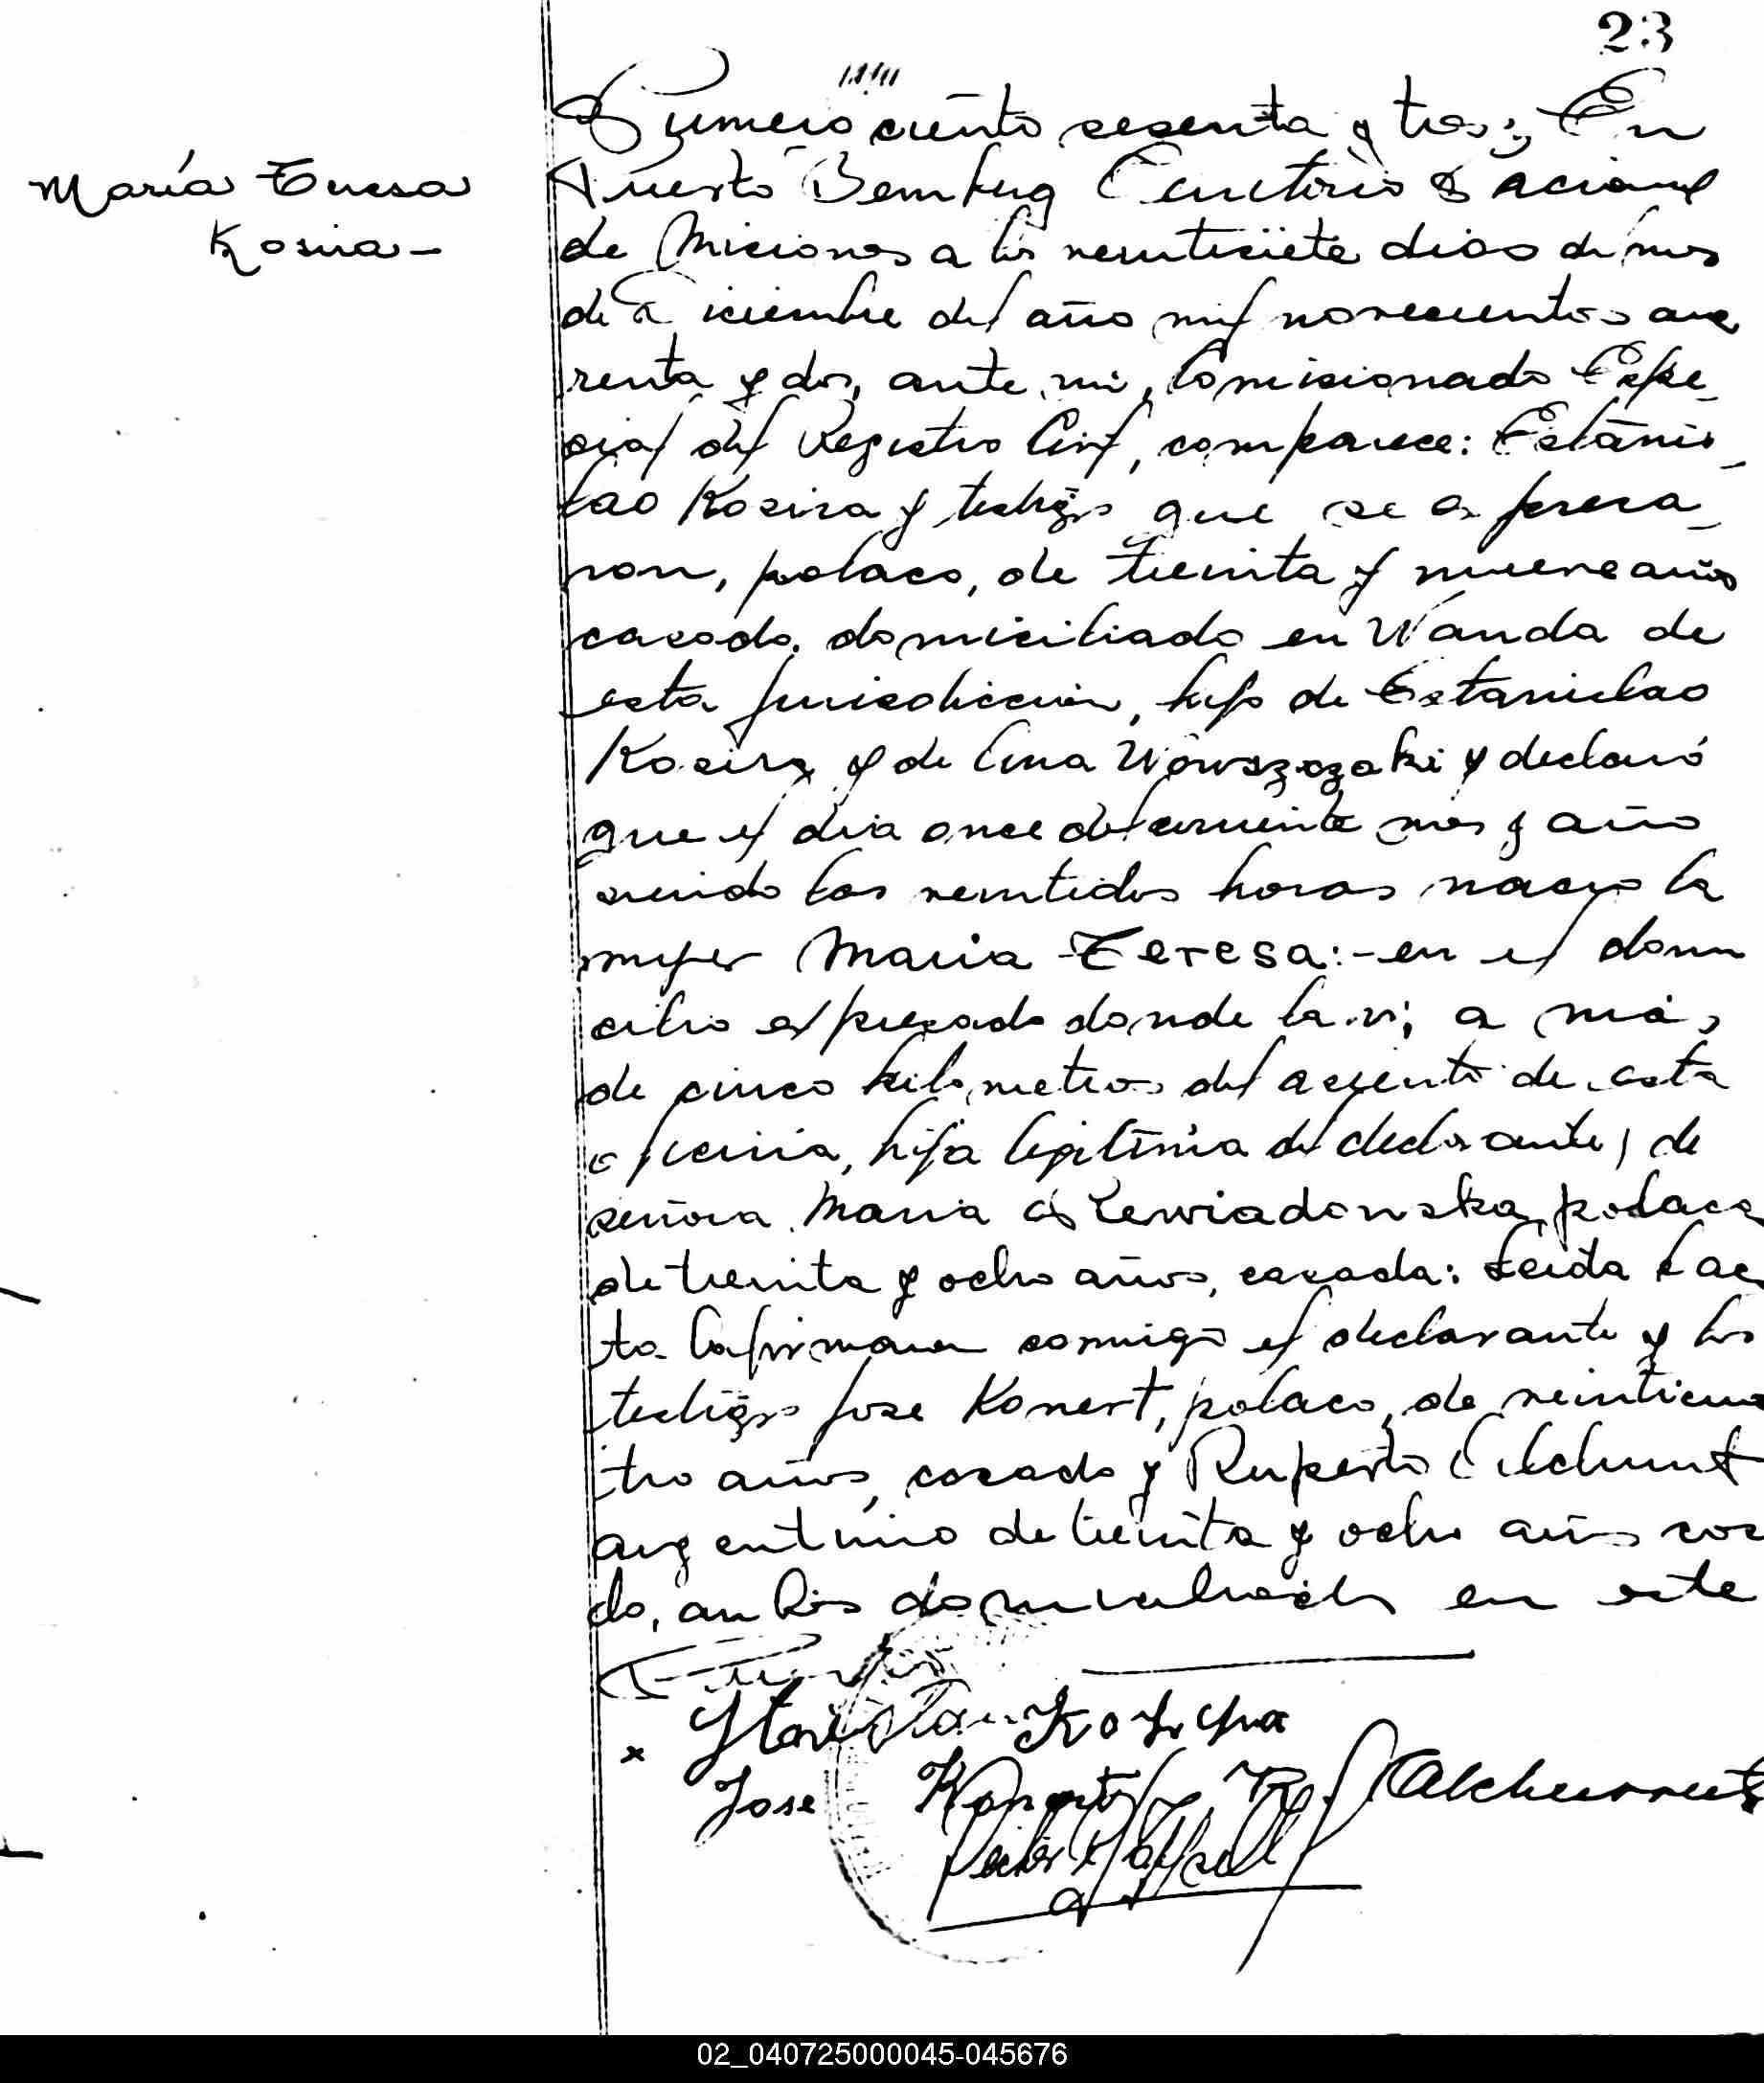 23
María Teresa
Kosira -
Numero ciento sesenta y tres; En
Puerto Bemberg Territorio Nacional
de Misiones a los veintisiete dias del mes
de Diciembre del año mil novecientos cua
renta y dos, ante mi, Comisionado Espe_
cial del Registro Civil, comparece: Estanis_
lao Kosira y testigos que se expresa_
ron, polaco, de treinta y nueve años
casado, domiciliado en Wanda de
esta jurisdiccion, hijo de Estanislao
Kosira y de Ana y declaró
que el dia once del corriente mes y año
siendo las veintidos horas nacio la
mujer Maria Teresa:- en el domi
cilio expresado donde la vi, a mas
de cinco kilometros del asiento de esta
oficina, hija legitima del declarante y de
señora Maria polaca
de treinta y ocho años, casada: Leida el ac
ta la firman conmigo el declarante y los
testigos Jose Konert, polaco, de veinticua
tro años, casado y Ruperto
argentino de treinta y ocho años casa
do, ambos domiciliados en este
Jose R.
02_040725000045-045676